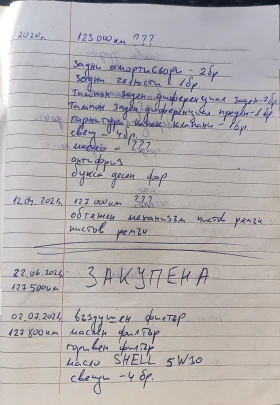 2020г. 123 000 км ???
задни амортисьори - 2бр.
задни челюсти - 1бр.
Тампон заден диференциал заден - 2бр.
Тампон заден диференциал преден - 1бр
гарнитура капак клапани - 1бр.
свещ - 4бр.
масло - ???
антифриз
букса десен фар
12.04.2021г. 127 000км ???
обтяжен механизъм пистов ремък
пистов ремък
22.06.2021г ЗАКУПЕНА
127 500км
02.07.2021г въздушен филтър
127 800км маслен филтър
горивен филтър
масло SHELL 5W30
свещи - 4бр.